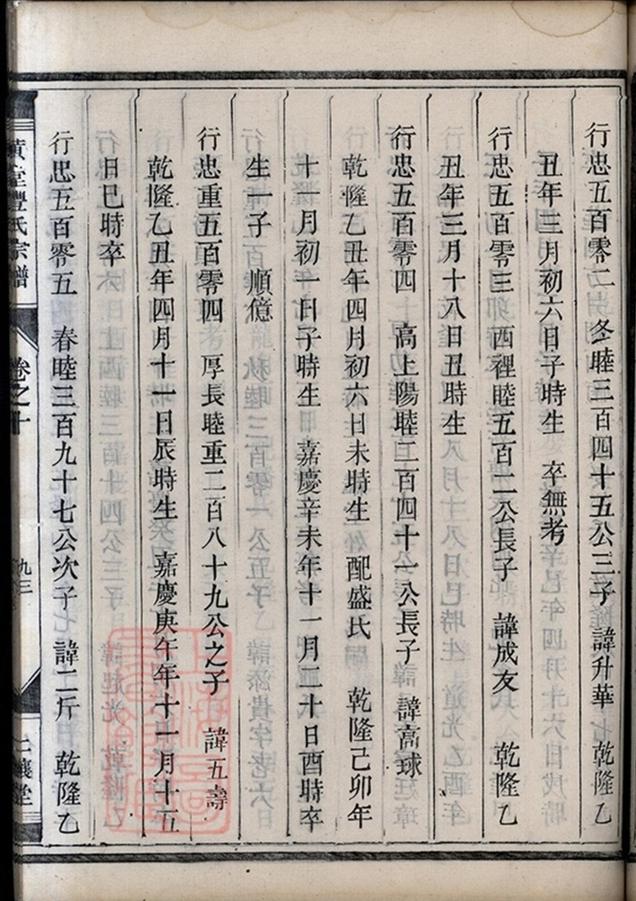 行忠五百零二 冬睦三百四十五公三子 諱升華 乾隆乙
丑年三月初六日子時生 卒無考
行忠五百零三 西裡睦五百二公長子 諱成友 乾隆乙
丑年三月十八日丑時生
行忠五百零四 高上陽睦二百四十一公長子 諱高球
乾隆乙丑年四月初六日未時生 配盛氏 乾隆己卯年
十一月初一日子時生 嘉慶辛未年十一月二十日酉時卒
生一子 順億
行忠重五百零四 厚長睦重二百八十九公之子 諱五壽
乾隆乙丑年四月十一日辰時生 嘉慶庚午年十一月十五
日巳時卒
行忠五百零五 春睦三百九十七公次子 諱二斤 乾隆乙
豐氏宗譜
卷之十
九三